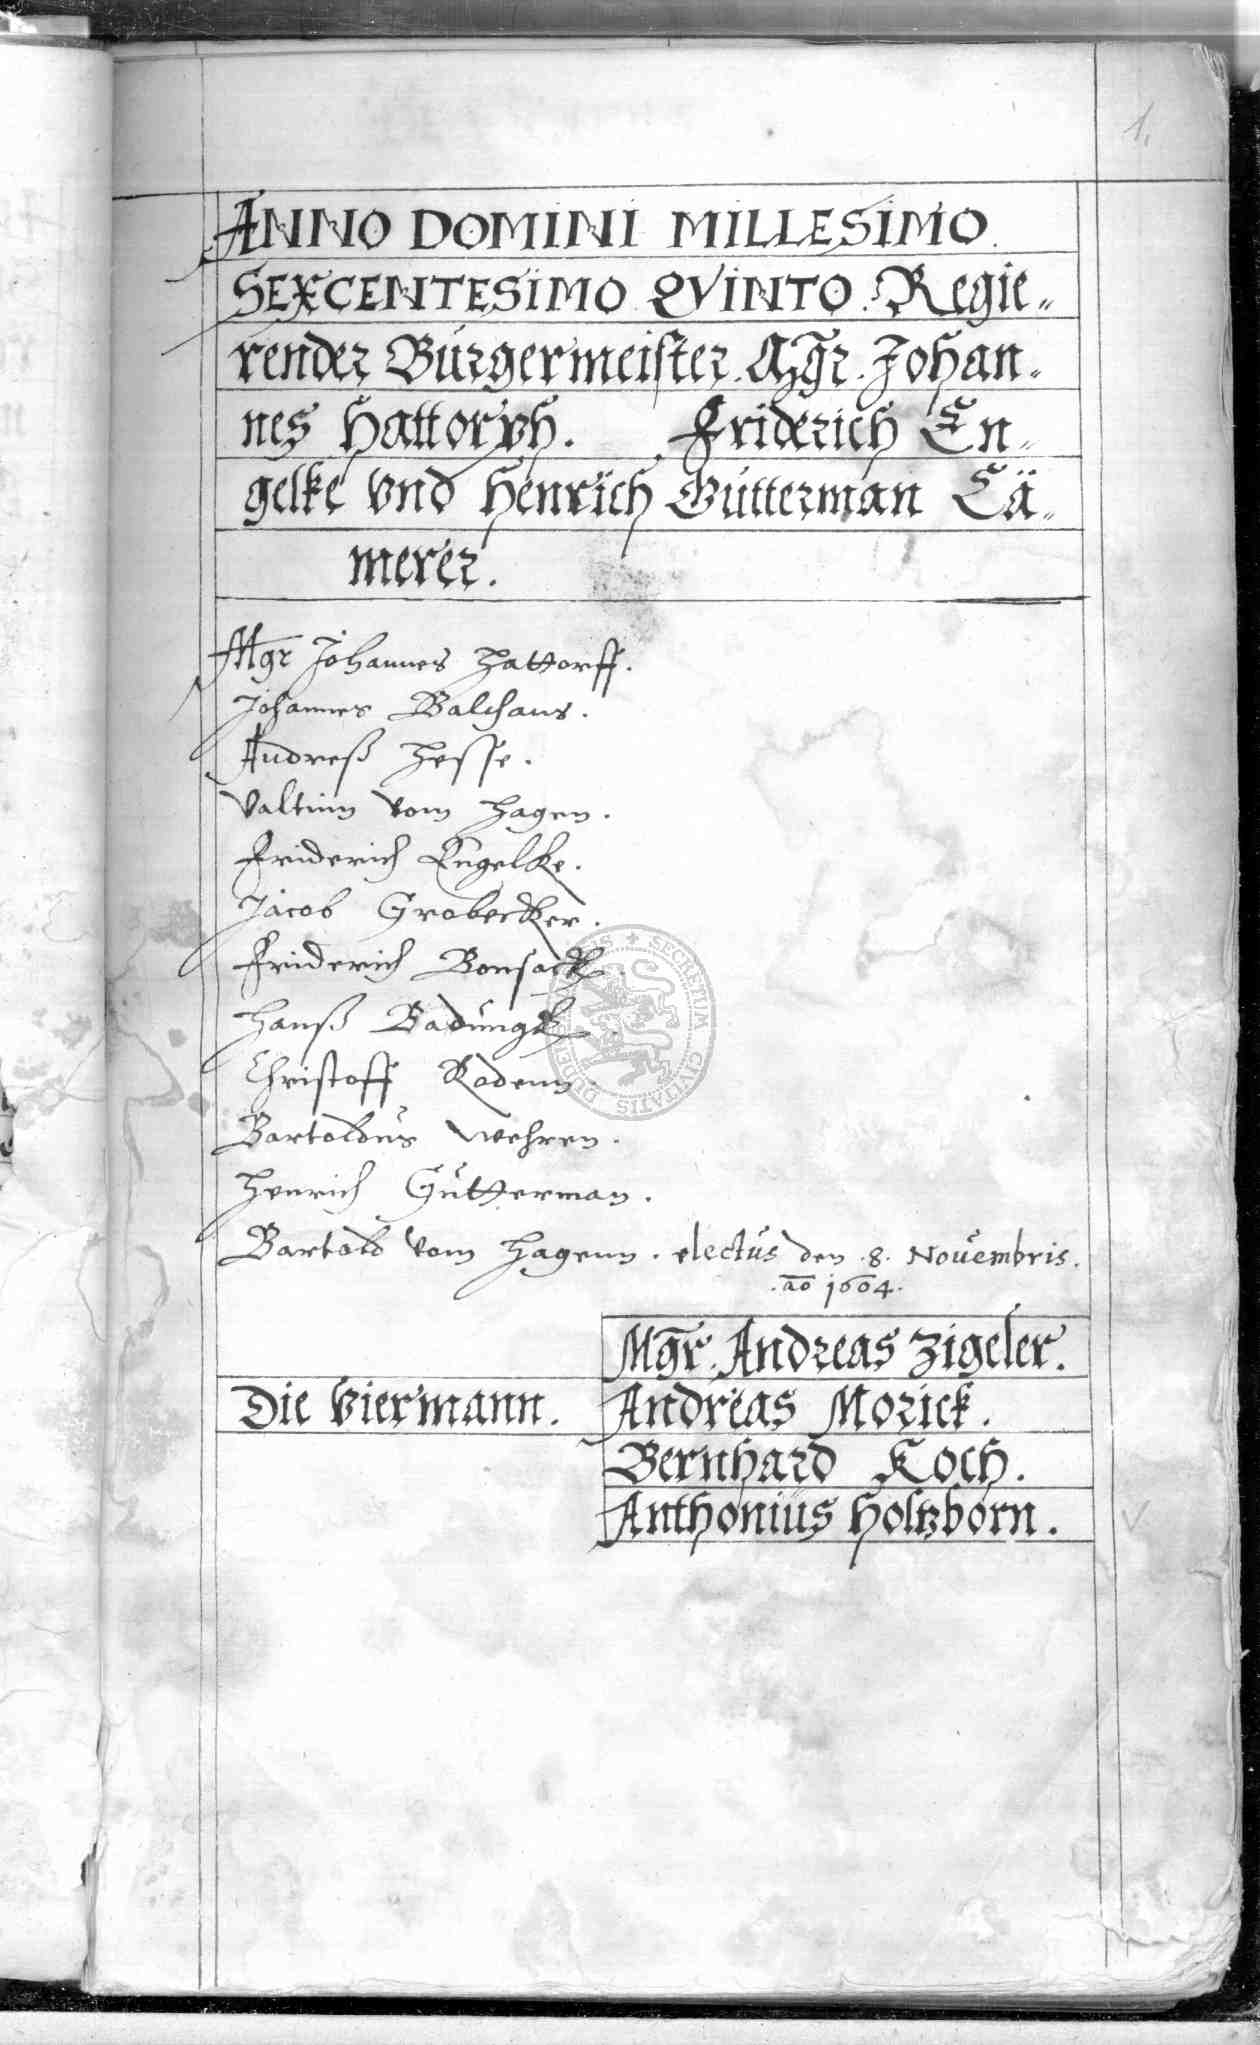 1.
ANNO DOMINI MILLESIMO.
SEXCENTESIMO QVINTO. Regie„
render Burgermeister. Mgr. Johan„
nes Hattorph. Friderich En„
gelke vnd Henrich Gutterman Cä„
merer.
Mgr Johannes Hattorff.
Johannes Balchaus.
Andreß Hesse.
Valtinn vom Hagen.
Friderich Engelke.
Jacob Grobecker.
Friderich Bonsack.
Hanß Badungk.
Christoff Rodenn.
Bartoldus Wehren.
Henrich Gutterman.
Bartold vom Hagenn. electus den .8. Novembris.
.ao 1604.
Mgr. Andreas Zigeler.
Die Viermann. Andreas Morick.
Bernhard Koch.
Anthonius Holtzborn.
SECRETUM CIVITATIS